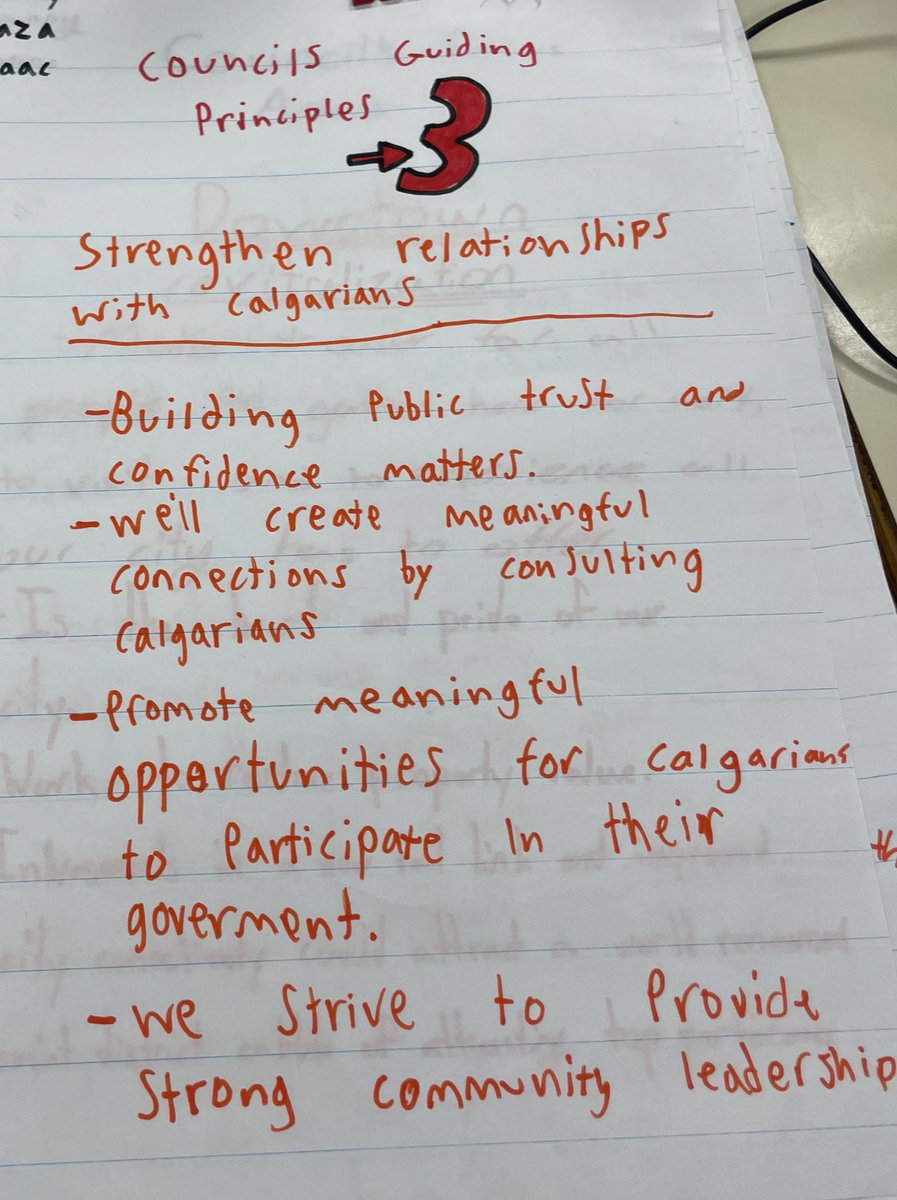 aza
aac
Councils Guiding
Principles
3
Strengthen relationships
with Calgarians
-Building Public trust and
confidence matters.
-we'll create meaningful
connections by consulting
Calgarians
-Promote meaningful
opportunities for Calgarians
to Participate In their
goverment.
-we Strive to Provide
Strong community leadership